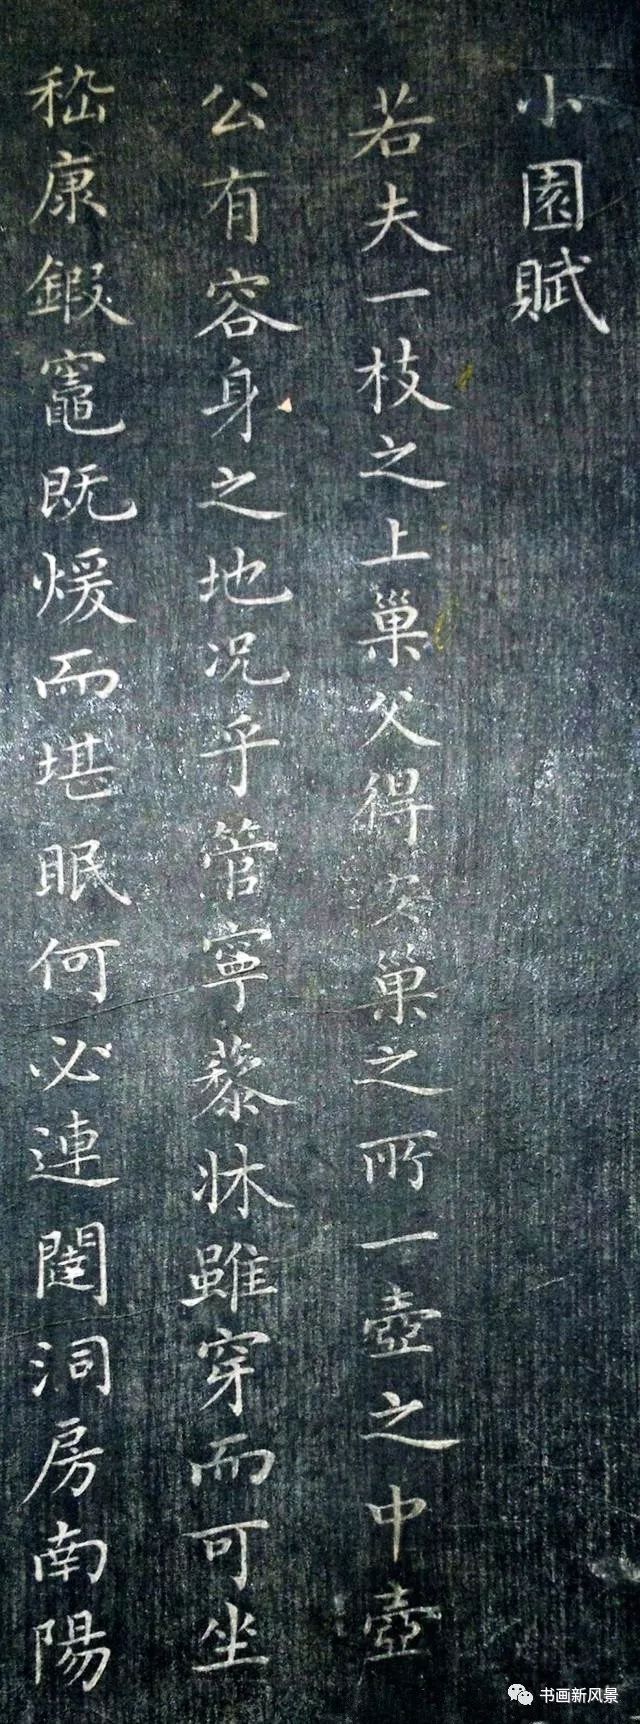 小園賦
若夫一枝之上巢父得安巢之所一壺之中壺
公有容身之地况乎管寧藜牀雖穿而可坐
嵇康鍜竈既煖而堪眠何必連闥洞房南陽
书画新风景